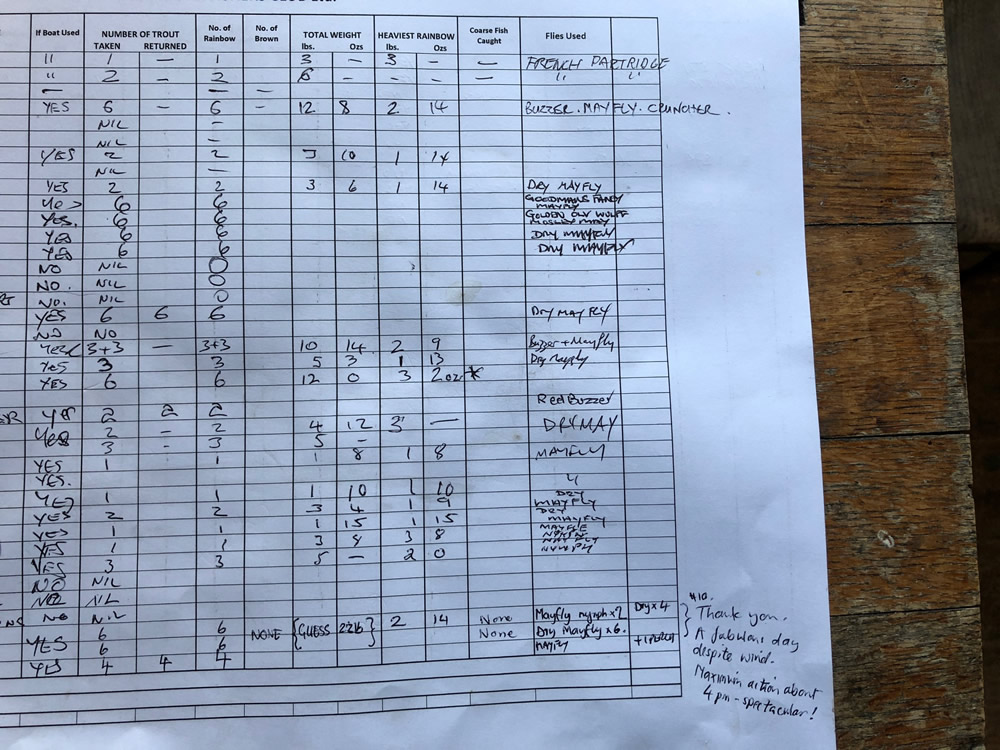 CLUB Ltd.
If Boat Used NUMBER OF TROUT No. of Rainbow No. of Brown TOTAL WEIGHT HEAVIEST RAINBOW Coarse Fish Caught Flies Used
TAKEN RETURNED lbs. Ozs lbs. Ozs
" 1 — 1 3 — 3 — — FRENCH PARTRIDGE
" 2 — 2 6 — — — — " "
— — —
YES 6 — 6 — 12 8 2 14 BUZZER. MAYFLY. CRUNCHER.
NIL —
NIL —
YES 2 2 3 10 1 14
NIL —
YES 2 2 3 6 1 14 DRY MAYFLY
6 6 GOODMANS FANCY
MAYFLY
YES. 6 6 GOLDEN OLY WULFF
YES 6 6 DRY MAYFLY
YES 6 6 DRY MAYFLY
NO NIL 0
NO. NIL 0
NO. NIL 0
YES 6 6 6 DRY MAY FLY
NO NO
YES 3+3 — 3+3 10 14 2 9 Buzzer + Mayfly
YES 3 3 5 3 1 13 Dry
YES 6 6 12 0 3 2 ozs *
Red Buzzer
YES 2 2 2
YES 2 – 2 4 12 3 — DRY MAY
3 – 3 5 –
YES 1 1 1 8 1 8 MAYFLY
YES.
YES 1 1 1 10 1 10 DRY
MAYFLY
YES 2 2 3 4 1 9 DRY
MAYFLY
YES 1 1 1 15 1 15
YES 1 1 3 8 3 8
YES 3 3 5 — 2 0
NO NIL
NIL
NO NIL None Mayfly nymph x 2 Dry x 4
6 6 NONE {GUESS 22lb} 2 14 None Dry Mayfly x 6.
YES 6 6 MAYFLY + 1 PERCH
YES 4 4 4
Thank you.
A fabulous day
despite wind.
Maximum action about
4 pm - spectacular!